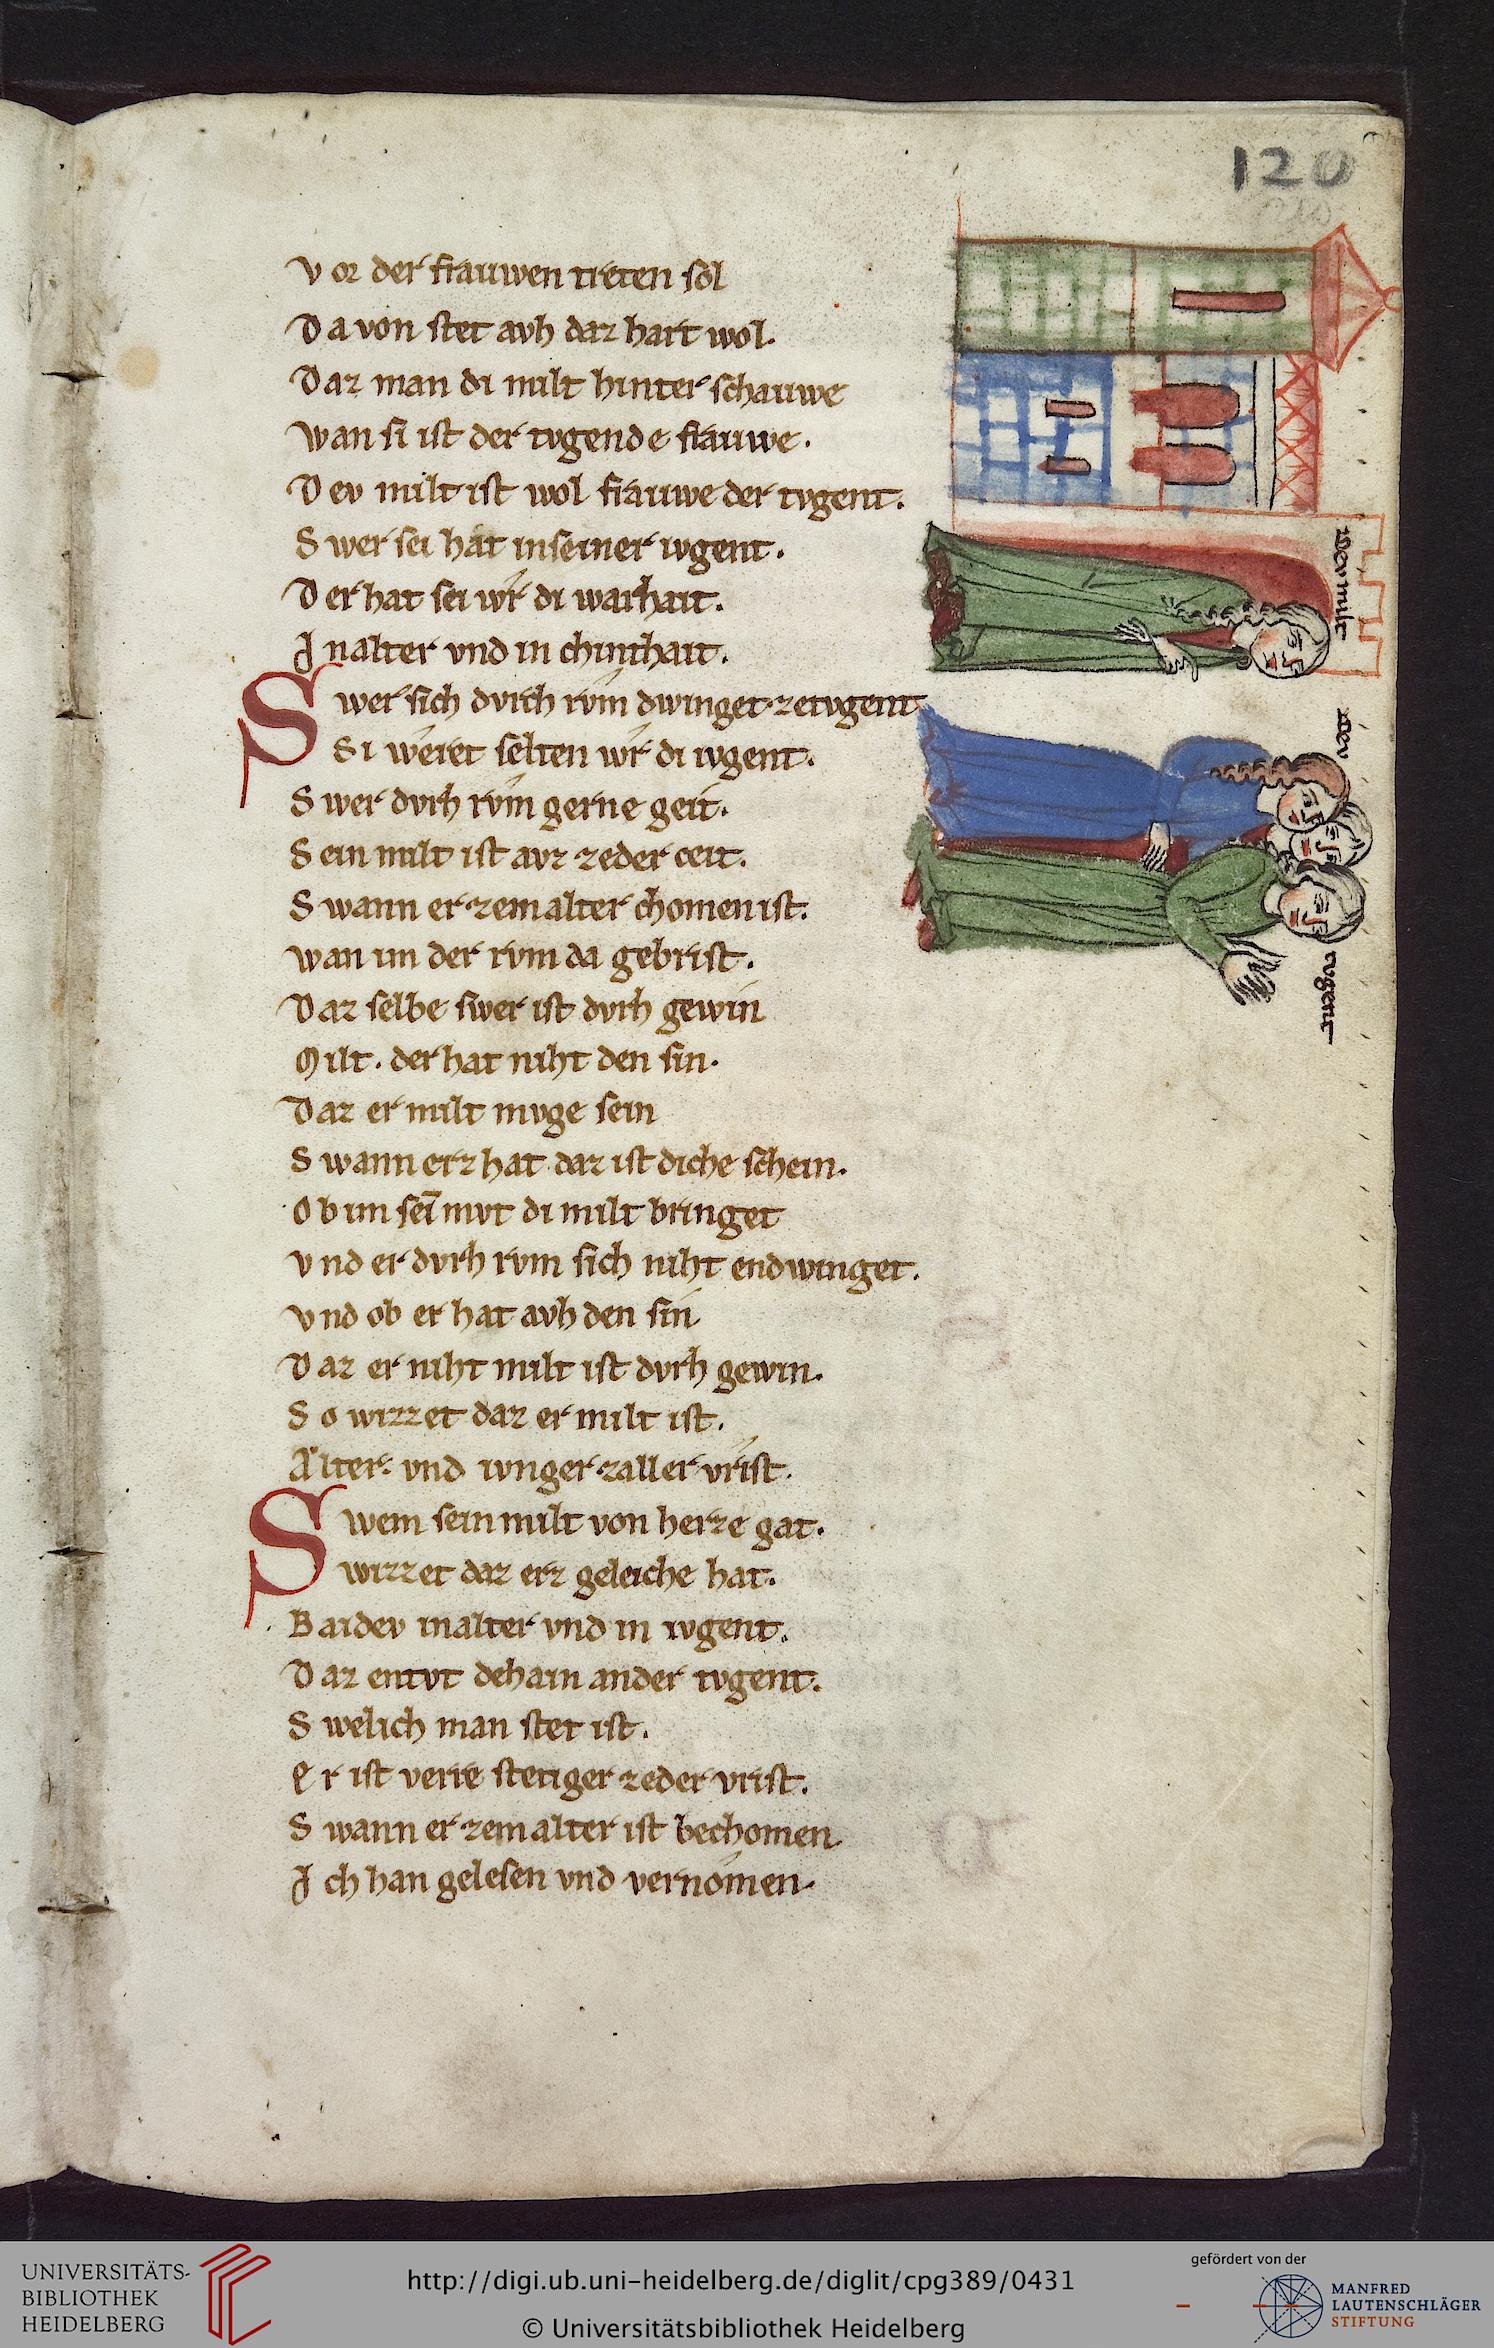 120
210
V or der frauwen treten sol
D a von stet avh daz hart wol.
D az man di milt hinter schauwe
wan si ist der tvgende frauwe.
D ev milt ist wol frauwe der tvgent.
S wer sei hat in seiner ivgent.
D er hat sei wͥr di warhait.
I n alter vnd in chinthait.
S wer sich dvrch rvm dwinget zetvgent
S i weret selten wͥr di ivgent.
S wer dvrh rvm gerne geit.
S ein milt ist avz zeder ceit.
S wann er zem alter chomen ist.
wan im der rvm da gebrist.
D az selbe swer ist dvrh gewin
M ilt. der hat niht den sin.
D az er milt mvge sein
S wann erz hat daz ist diche schein.
O b im sei̅ mvt di milt bringet
v nd er dvrh rvm sich niht endwinget.
v nd ob er hat avh den sin
D az er niht milt ist dvrh gewin.
S o wizzet daz er milt ist.
A lter. vnd ivnger zaller vrist.
S wem sein milt von herze gat.
wizzet daz erz geleiche hat.
B aidev in alter vnd in ivgent.
D az entvt dehain ander tvgent.
S welich man stet ist.
E r ist verre stetiger zeder vrist.
S wann er zem alter ist bechomen.
I ch han gelesen vnd vernomen.
Dev milt
Dev
tvgent
UNIVERSITÄTS-
BIBLIOTHEK
HEIDELBERG
http://digi.ub.uni-heidelberg.de/diglit/cpg389/0431
© Universitätsbibliothek Heidelberg
gefördert von der
MANFRED
LAUTENSCHLÄGER
STIFTUNG